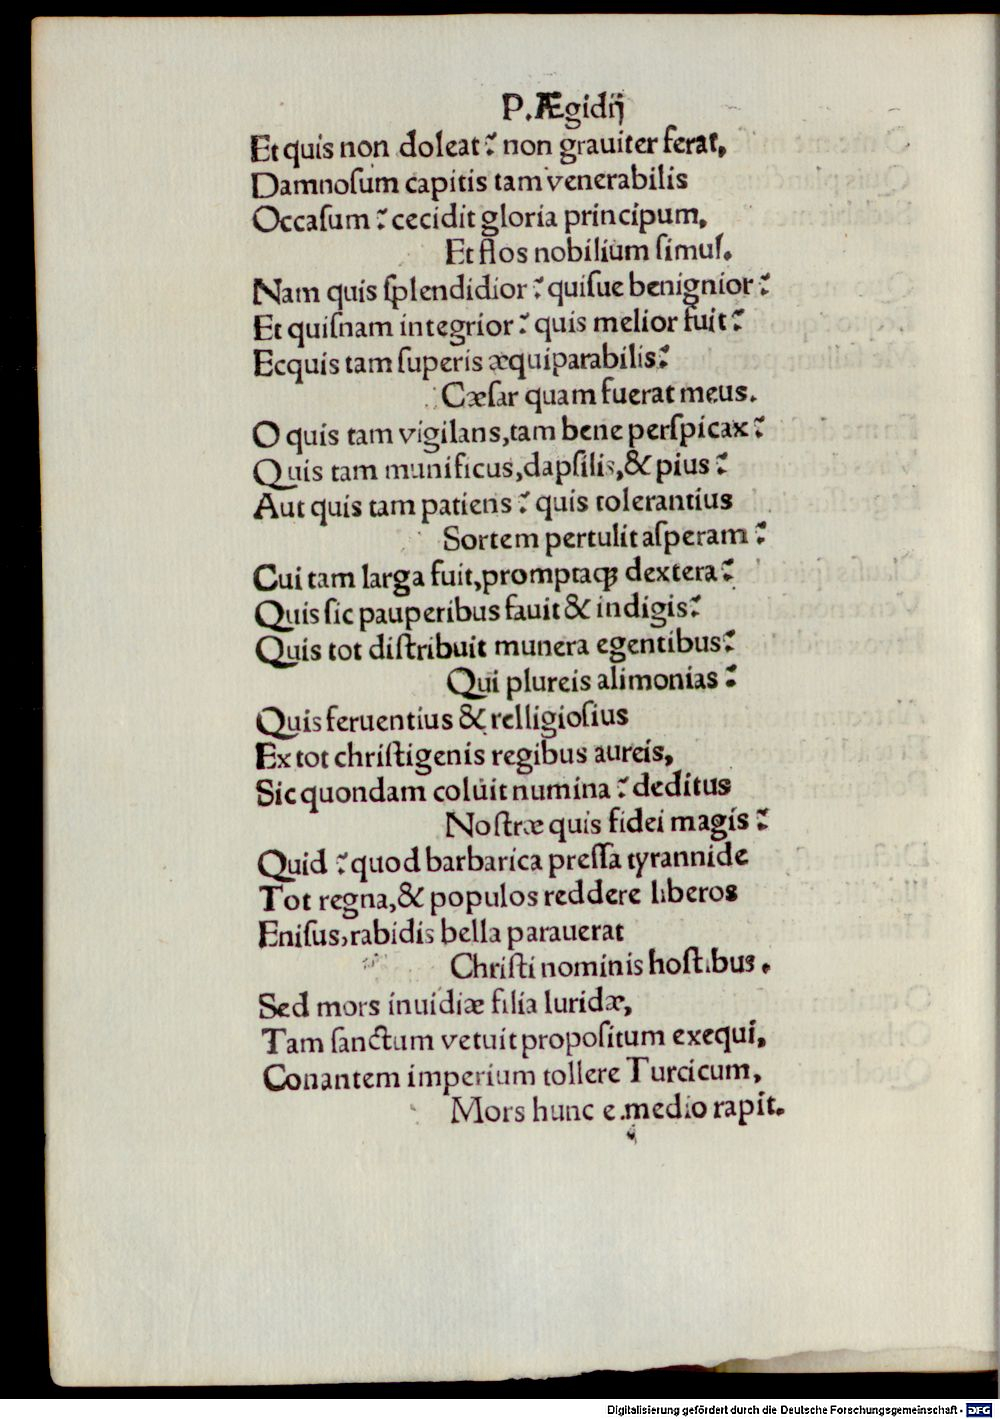 P. Ægidij
Et quis non doleat? non grauiter ferat,
Damnoſum capitis tam venerabilis
Occaſum? cecidit gloria principum,
Et flos nobilium ſimul.
Nam quis ſplendidior? quiſue benignior?
Et quiſnam integrior? quis melior fuit?
Ecquis tam ſuperis æquiparabilis?
Cæſar quam fuerat meus.
O quis tam vigilans,tam bene perſpicax?
Quis tam munificus,dapſilis,& pius?
Aut quis tam patiens? quis tolerantius
Sortem pertulit aſperam?
Cui tam larga fuit,promptaqꝫ dextera?
Quis ſic pauperibus fauit & indigis?
Quis tot diſtribuit munera egentibus?
Qui plureis alimonias?
Quis feruentius & relligioſius
Ex tot chriſtigenis regibus aureis,
Sic quondam coluit numina? deditus
Noſtræ quis fidei magis?
Quid? quod barbarica preſſa tyrannide
Tot regna,& populos reddere liberos
Eniſus,rabidis bella parauerat
Chriſti nominis hoſtibus.
Sed mors inuidiæ filia luridæ,
Tam ſanctum vetuit propoſitum exequi,
Conantem imperium tollere Turcicum,
Mors hunc e medio rapit.
Digitalisierung gefördert durch die Deutsche Forschungsgemeinschaft - DFG